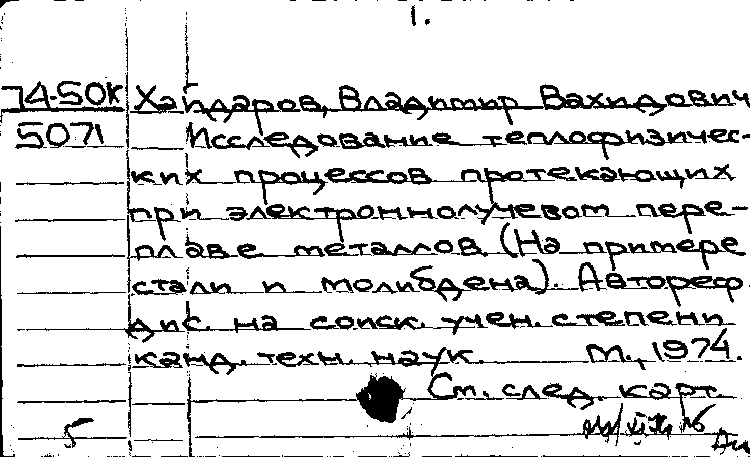 1.
74-50К Хайдаров, Владимир Вахидович
5071 Исследование теплофизичес-
ких процессов протекающих
при электроннолучевом пере-
плаве металлов (На примере
стали и молибдена). Автореф.
дис. на соиск. учен. степени
канд. техн. наук. М., 1974.
См. след. карт.
5